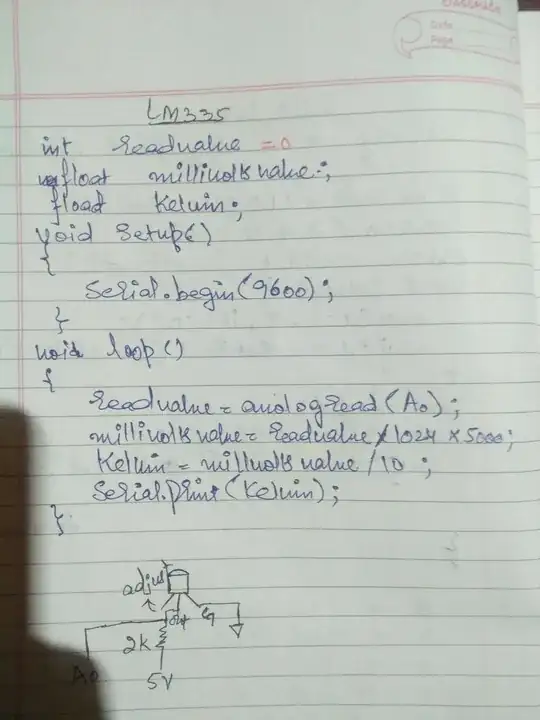 Date
Page
LM335
int readvalue = 0
float millivolts value;
float Kelvin;
void setup()
{
Serial.begin(9600);
}
void loop()
{
readvalue = analogRead(A0);
millivolts value = readvalue / 1024 × 5000;
Kelvin = millivolts value / 10 ;
Serial.print(Kelvin);
}
adjust
out
G
2k
A0
5V